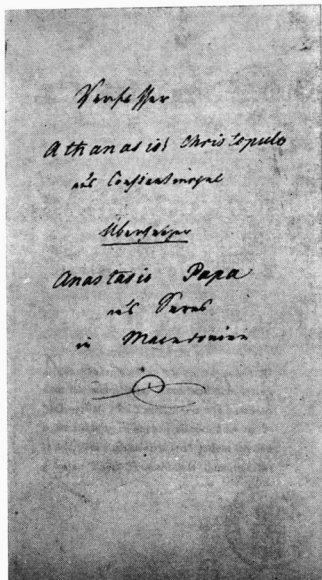 Verfasser
Athanasios Christopulo
aus Constantinopel
Übersetzer
Anastasis Papa
aus Seres
in Macedonien